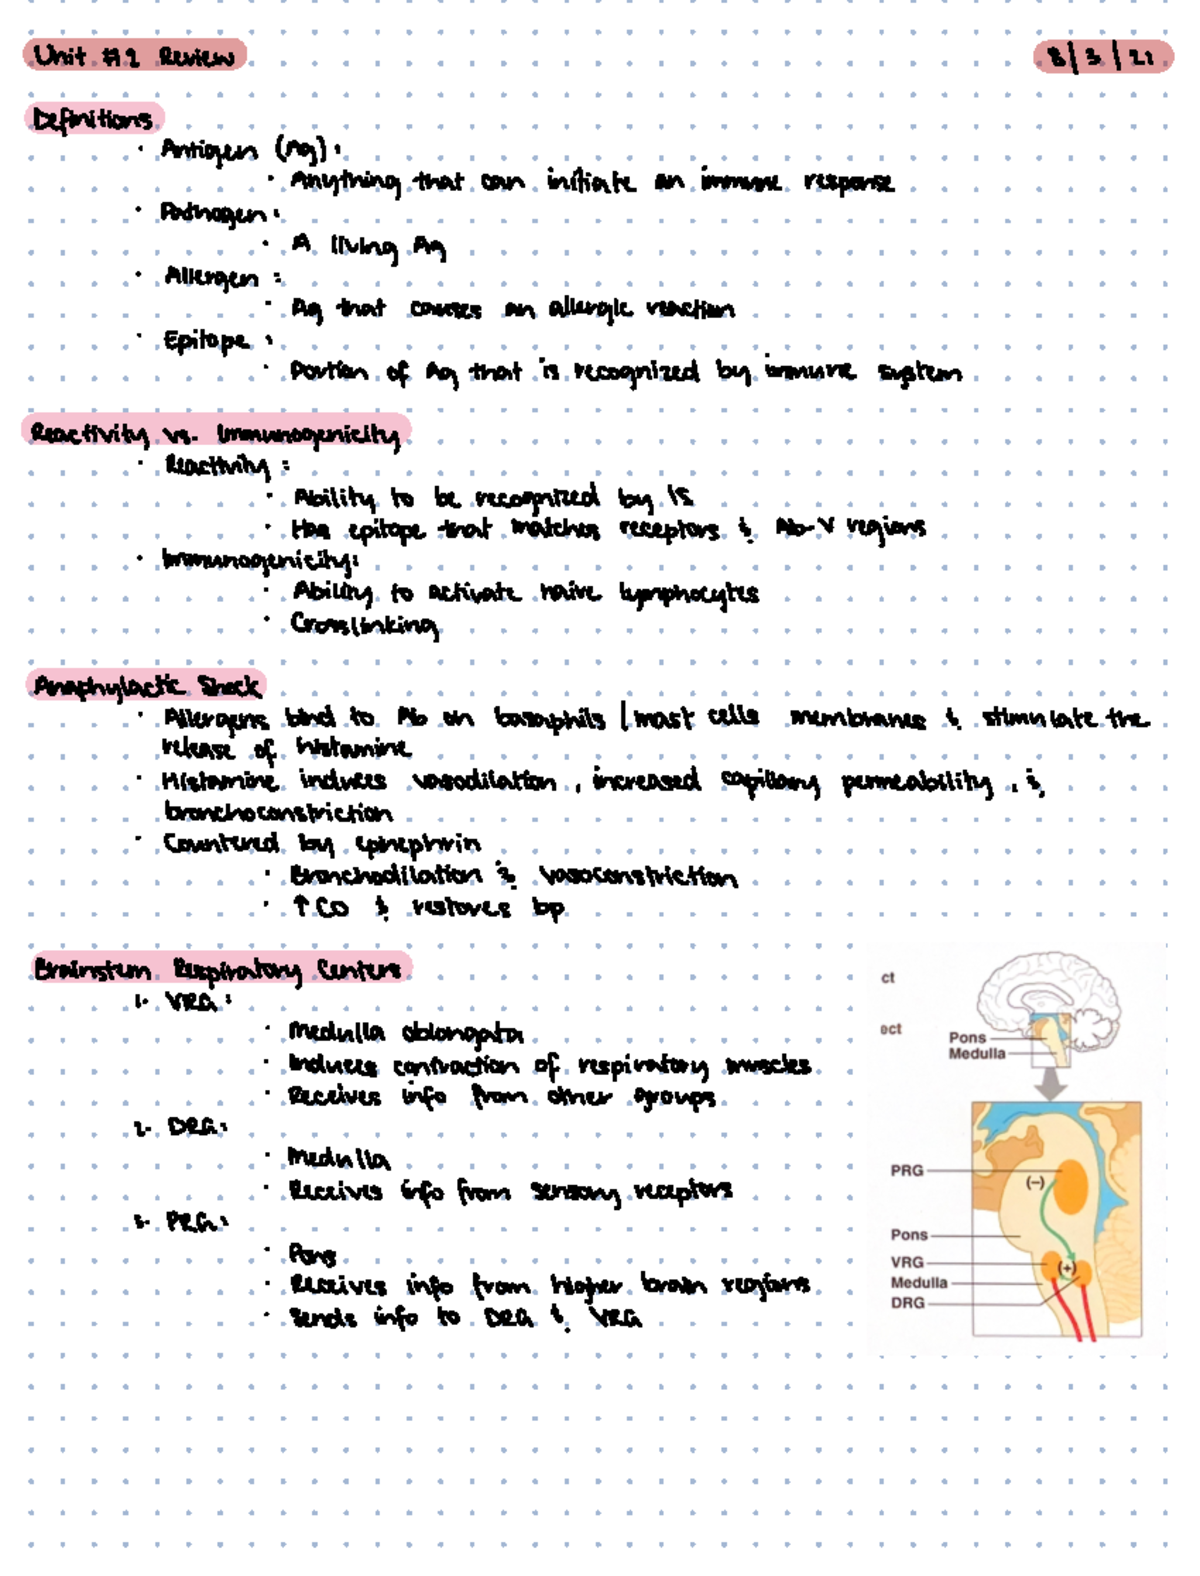 Unit #2 Review
8/3/21
Definitions
· Antigen (Ag):
· Anything that can initiate an immune response
· Pathogen:
· A living Ag
· Allergen:
· Ag that causes an allergic reaction
· Epitope:
· Portion of Ag that is recognized by immune system
Reactivity vs. Immunogenicity
· Reactivity:
· Ability to be recognized by IS
· Has epitope that matches receptors & Ab-V regions
· Immunogenicity:
· Ability to activate naive lymphocytes
· Crosslinking
Anaphylactic Shock
· Allergens bind to Ab on basophils / mast cells membranes & stimulate the
release of histamine
· Histamine induces vasodilation, increased capillary permeability, &
bronchoconstriction
· Countered by epinephrin
· Bronchodilation & vasoconstriction
· ↑ CO & restores bp
Brainstem Respiratory Centers
1. VRG:
· Medulla oblongata
· Induces contraction of respiratory muscles
· Receives info from other groups
2. DRG:
· Medulla
· Receives info from sensory receptors
3. PRG:
· Pons
· Receives info from higher brain regions
· Sends info to DRG & VRG
ct
ect
Pons
Medulla
PRG
(−)
Pons
VRG
(+)
Medulla
DRG